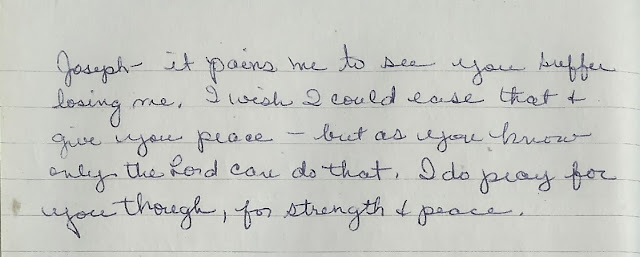 Joseph- it pains me to see you suffer
losing me. I wish I could ease that &
give you peace - but as you know
only the Lord can do that. I do pray for
you though, for strength & peace.